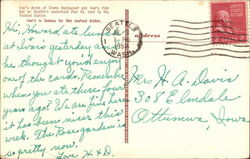 Ivar's Acres of Clams Restaurant and Ivar's Fish
Bar on Seattle's waterfront Pier 54, next to the
fireboat station.
Ivar's is famous for fine seafood dishes.
Hi, Howard ate lunch
at Ivar's yesterday &
he thought you'd enjoy
one of the cards. Remember
when you ate there four
years ago? We are fine here
it has been nice this
week. The Rose garden is
so pretty now.
Love H & D.
SEATTLE
WASH.
Address
Mr. H A. Davis
308 E. Elmdale
Ottumwa, Iowa